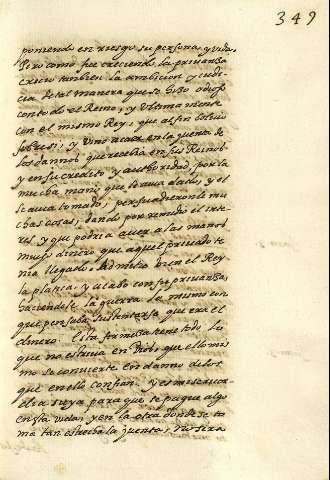 349
poniendo en riesgo su persona, y vida.
Pero como fue creciendo la privanza
crecio tambien la ambicion y cudi-
cia de tal manera que se hizo odioso
con todo el Reino, y ultimamente
con el mismo Rey, que al fin bolvio
sobre si, y vino a caer en la quenta de
los daños que recebia en sus Reinos
y en su credito, y authoridad, por la
mucha mano que le avia dado, y el
se avia tomado; persuadieronle mu-
chas cosas, dando por remedio el
y que podria aver a las manos
mucho dinero que aquel privado te-
nia llegado. Admitio bien el Rey
la platica, y acabo con su privanza
haciendole la guerra lo mismo con
que pensaba sustentarse que era el
dinero. Esta formuta tiene todo lo
que no estriva en Dios, que ello mis-
mo se convierte en daño de los
que en ello confian. y es misericor-
dia suya para que se pague algo
en esta vida, y en la otra donde se to-
ma tan estrecha la quenta, no sera